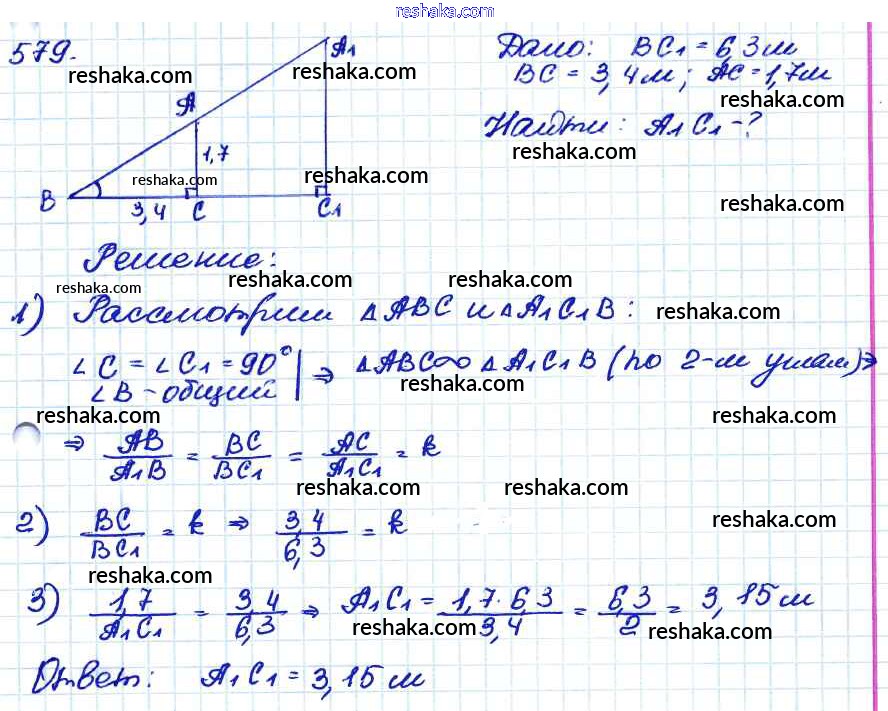 reshaka.com
579.
A1
Дано: BC1 = 6,3м
reshaka.com
reshaka.com
BC = 3,4м; AC = 1,7м
A
reshaka.com
Найти: A1C1 - ?
1,7
reshaka.com
reshaka.com
reshaka.com
B
3,4
C
C1
reshaka.com
Решение:
reshaka.com
reshaka.com
reshaka.com
1) Рассмотрим △ABC и △A1C1B:
reshaka.com
∠C = ∠C1 = 90° | ⇒ △ABC∞△A1C1B (по 2-м углам) ⇒
∠B - общий
reshaka.com
reshaka.com
reshaka.com
⇒ AB/A1B = BC/BC1 = AC/A1C1 = k
reshaka.com
reshaka.com
2) BC/BC1 = k ⇒ 3,4/6,3 = k
reshaka.com
reshaka.com
3) 1,7/A1C1 = 3,4/6,3 ⇒ A1C1 = 1,7·6,3/3,4 = 6,3/2 = 3,15м
reshaka.com
reshaka.com
Ответ: A1C1 = 3,15м